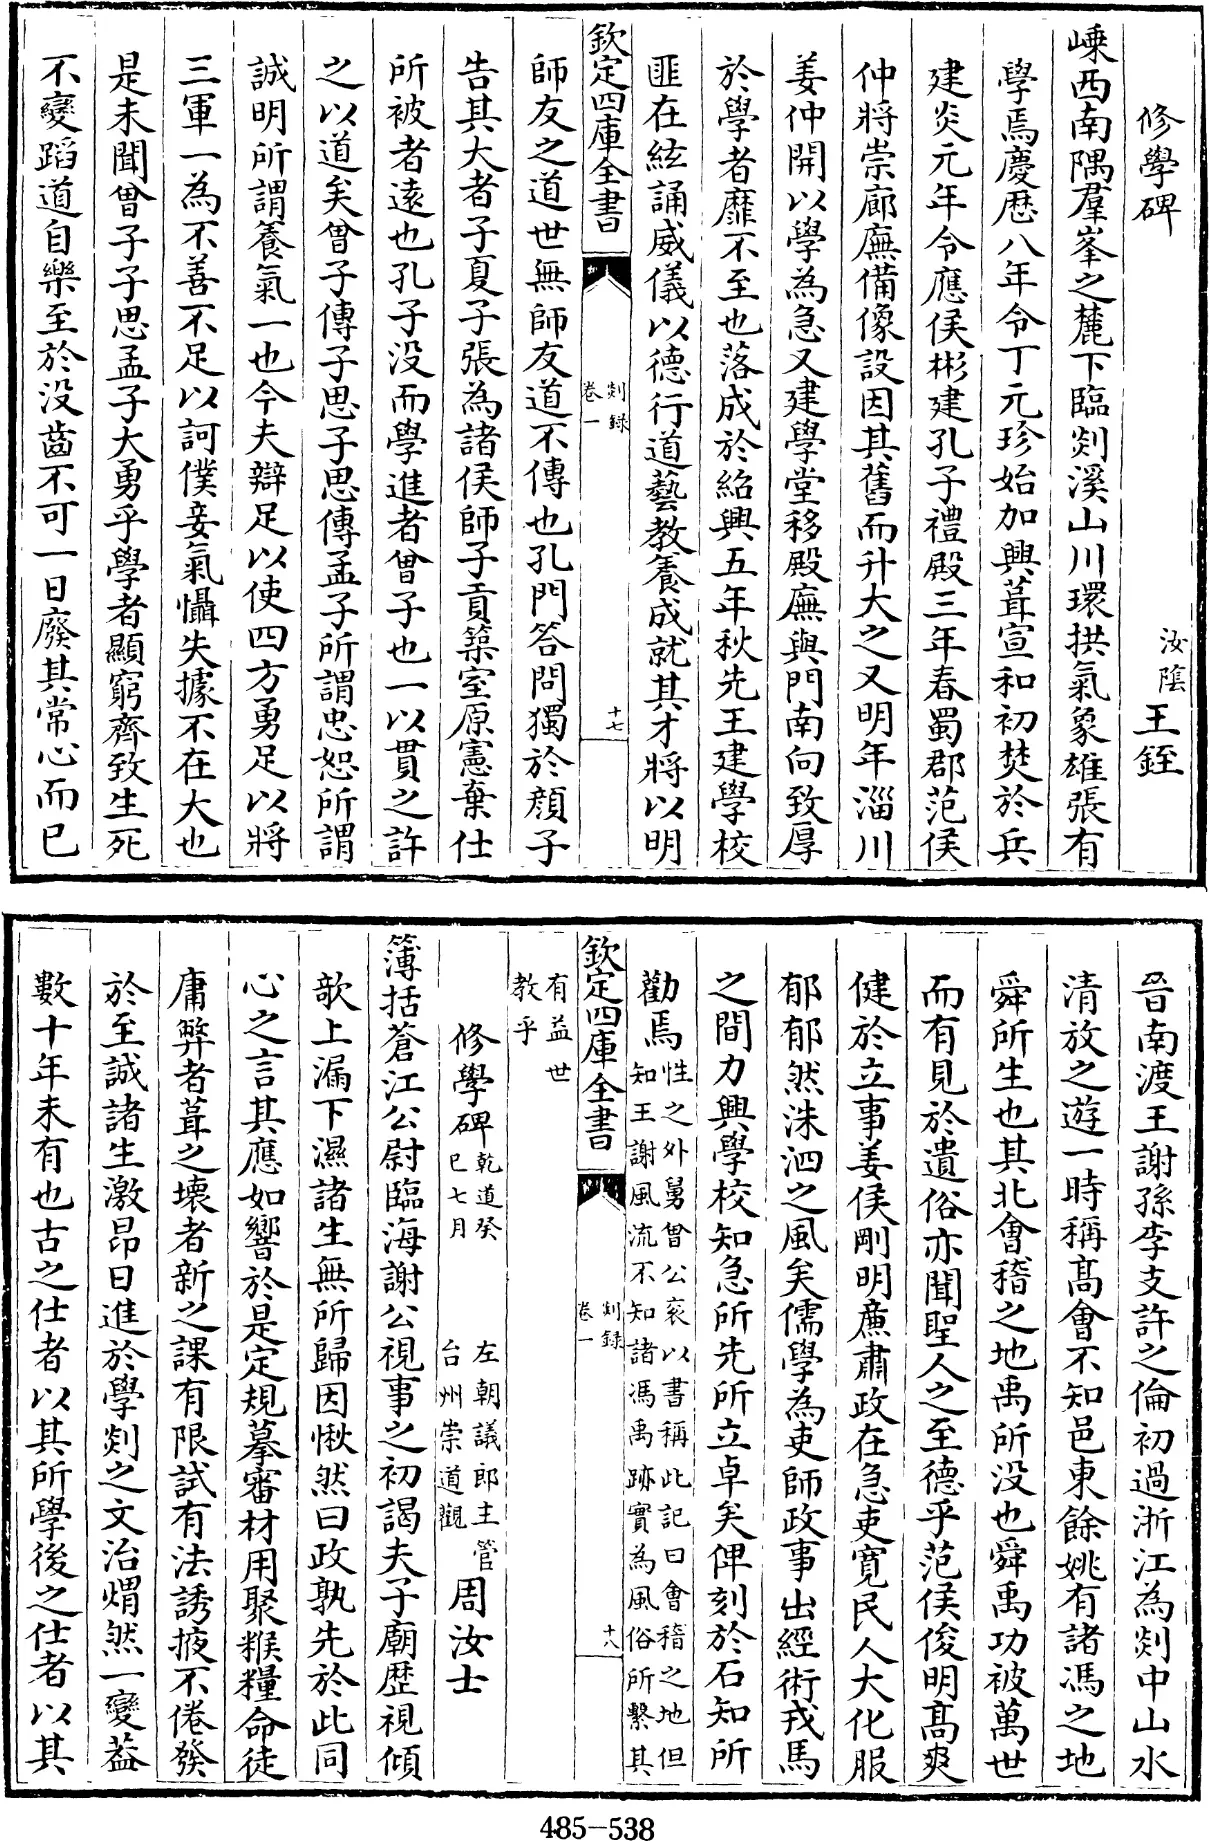 修學碑
汝陰王銍
嵊西南隅羣峯之麓下臨剡溪山川環拱氣象雄張有
學焉慶厯八年令丁元珍始加興葺宣和初焚於兵
建炎元年令應侯彬建孔子禮殿三年春蜀郡范侯
仲將崇廊廡備像設因其舊而升大之又明年淄川
姜仲開以學為急又建學堂移殿廡與門南向致厚
於學者靡不至也落成於紹興五年秋先王建學校
匪在絃誦威儀以德行道藝教養成就其才將以明
欽定四庫全書
剡録
卷一
十七
師友之道世無師友道不傳也孔門答問獨於顔子
告其大者子夏子張為諸侯師子貢築室原憲棄仕
所被者遠也孔子没而學進者曾子也一以貫之許
之以道矣曾子傳子思子思傳孟子所謂忠恕所謂
誠明所謂養氣一也今夫辯足以使四方勇足以將
三軍一為不善不足以訶僕妾氣懾失據不在大也
是未聞曾子子思孟子大勇乎學者顯窮齊致生死
不變蹈道自樂至於没齒不可一日廢其常心而已
晉南渡王謝孫李支許之倫初過浙江為剡中山水
清放之遊一時稱髙會不知邑東餘姚有諸馮之地
舜所生也其北會稽之地禹所没也舜禹功被萬世
而有見於遺俗亦聞聖人之至德乎范侯俊明髙爽
健於立事姜侯剛明亷肅政在急吏寛民人大化服
郁郁然洙泗之風矣儒學為吏師政事出經術戎馬
之間力興學校知急所先所立卓矣俾刻於石知所
勸焉性之外舅曾公衮以書稱此記曰會稽之地但
知王謝風流不知諸馮禹跡實為風俗所繫其
欽定四庫全書
剡録
卷一
十八
有益世
教乎
修學碑乾道癸
巳七月
左朝議郎主管
台州崇道觀
周汝士
簿括蒼江公尉臨海謝公視事之初謁夫子廟歴視傾
欹上漏下濕諸生無所歸因愀然曰政孰先於此同
心之言其應如響於是定規摹審材用聚糇糧命徒
庸弊者葺之壊者新之課有限試有法誘掖不倦發
於至誠諸生激昂日進於學剡之文治焆然一變葢
數十年未有也古之仕者以其所學後之仕者以其
485-538